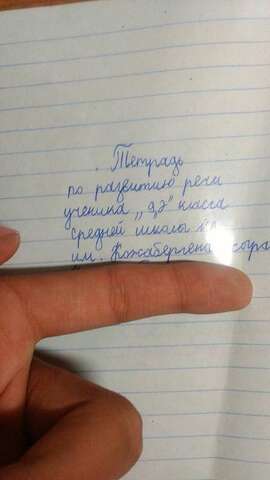 Тетрадь
по развитию речи
ученика „9 Э" класса
средней школы №
им. Кожабергена